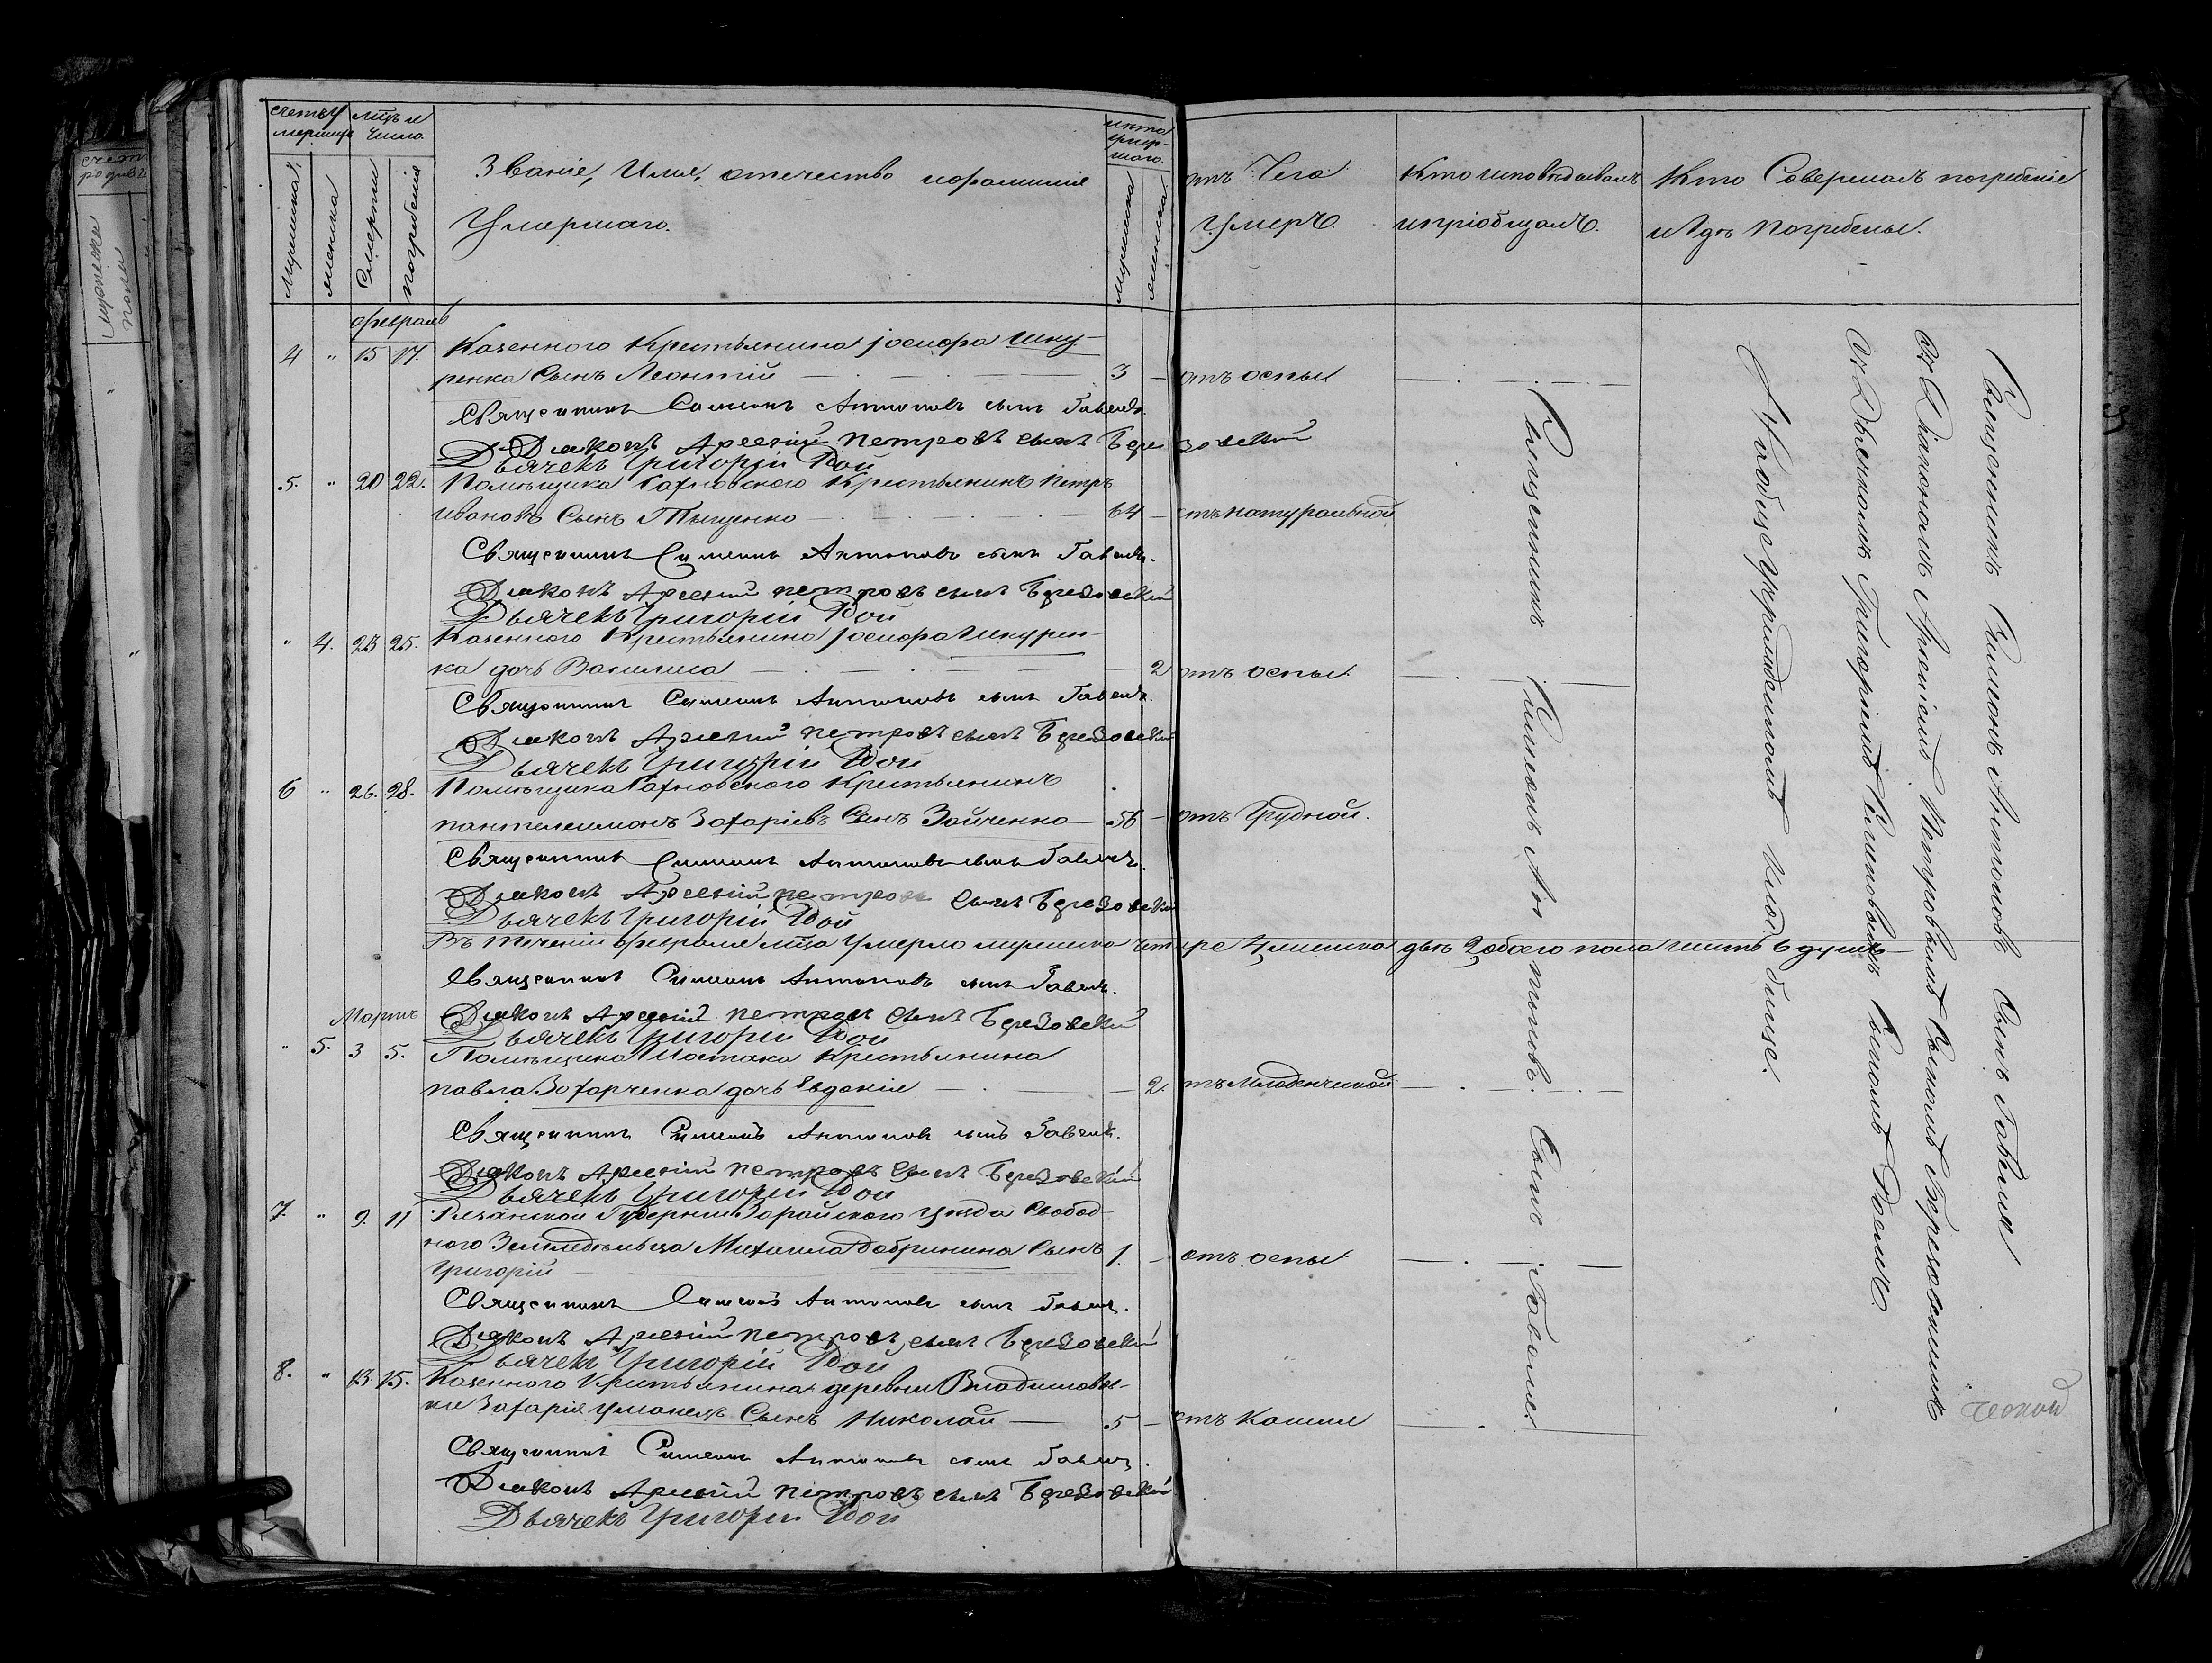 счетъ
родивш
женска
полов
счетъ У
мершихъ
мѣцъ и
число
Мушеска
женска
Смерти
погребения
Званіе, Имя, отечество ифамилия
Умершаго.
Мушеска
женска
отъ Чего
Умеръ.
Кто исповѣдывалъ
ипріобщалъ.
Кто Совершалъ погребеніе
и Где Погребены.
Февраль
4 " 15 17. Казенного Крестьянина Іосифа Шку-
ренка Сынъ Леонтій 3 — отъ оспы
Священникъ Симеонъ Антоновъ сынъ Гавель.
Діаконъ Арсеній петровъ сынъ Березовскій
Дьячекъ Григорій Рой
5. " 20 22. Помѣщика Сахновского Крестьянинъ Петръ
Ивановъ Сынъ Тыщенко 64 — отъ натуральной
Священникъ Симеонъ Антоновъ сынъ Гавель.
Діаконъ Арсеній петровъ сынъ Березовскій
Дьячекъ Григорій Рой
" 4. 23 25. Казенного Крестьянина Іосифа Шкурен-
ка дочь Василиса — 2 отъ оспы.
Священникъ Симеонъ Антоновъ сынъ Гавель.
Діаконъ Арсеній петровъ сынъ Березовскій
Дьячекъ Григорій Рой
6 " 26. 28. Помѣщика Сахновского Крестьянинъ
пантелеимонъ Захаріевъ Сынъ Зайченко 56 — отъ Грудной.
Священникъ Симеонъ Антоновъ сынъ Гавель.
Діаконъ Арсеній петровъ сынъ Березовскій
Дьячекъ Григорій Рой
Въ течении февраля мѣца Умерло мушеска четыре 4 женска двѣ 2 обоего пола шесть 6 душъ
Священникъ Симеонъ Антоновъ сынъ Гавель.
Діаконъ Арсеній петровъ сынъ Березовскій
Дьячекъ Григорій Рой
Мартъ
" 5. 3 5. Помѣщика Крестьянина
павла Захарченка дочь Евдокія — 2. отъ Младенческой
Священникъ Симеонъ Антоновъ сынъ Гавель.
Діаконъ Арсеній петровъ сынъ Березовскій
Дьячекъ Григорій Рой
7. " 9. 11 Рязанской Губернии Зарайского уезда Свобод-
ного Земледельца Михаила Добринина Сынъ
Григорій 1. — отъ оспы
Священникъ Симеонъ Антоновъ сынъ Гавель.
Діаконъ Арсеній петровъ сынъ Березовскій
Дьячекъ Григорій Рой
8. " 13. 15. Казенного Крестьянина деревни Владимовки
Захарія Уманецъ Сынъ Николай 5 — отъ Кашля
Священникъ Симеонъ Антоновъ сынъ Гавель.
Діаконъ Арсеній петровъ сынъ Березовскій
Дьячекъ Григорій Рой
Священникъ Симеонъ Антоновъ Сынъ Гавеля
Священникъ Симеонъ Антоновъ Сынъ Гавеля
Съ Діакономъ Арсеніемъ Петровымъ Сыномъ Березовскимъ
И Дьячкомъ Григоріемъ Сыномъ Роемъ.
На общеутвержденномъ кладбище.